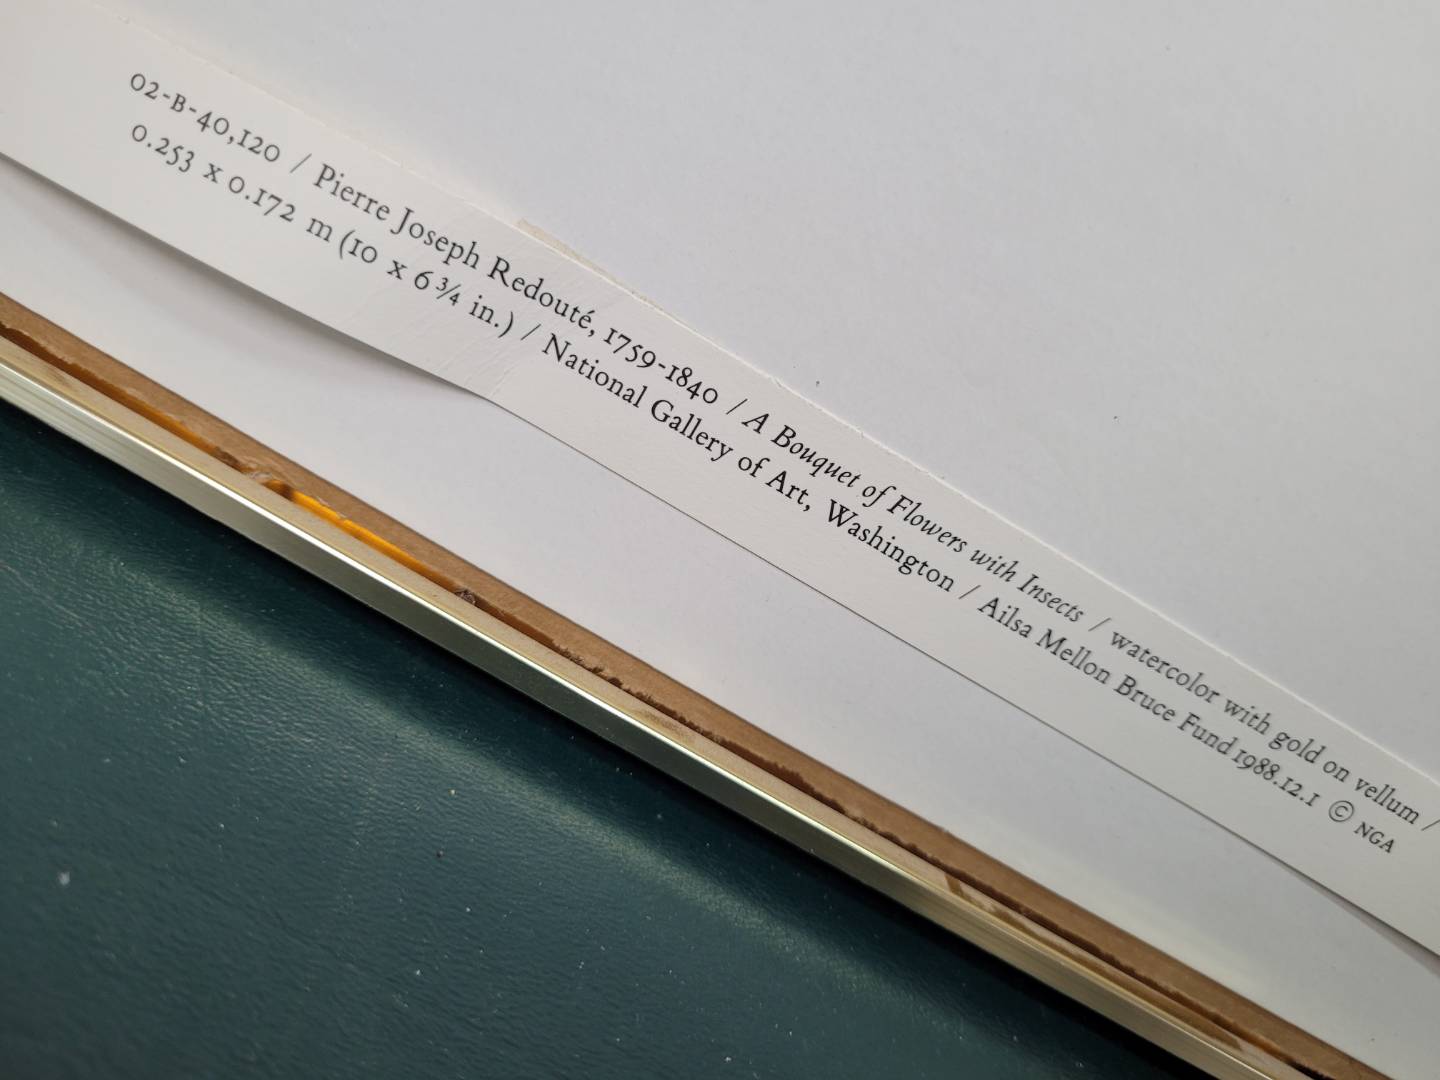 02-B-40,120 / Pierre Joseph Redouté, 1759-1840 / A Bouquet of Flowers with Insects / watercolor with gold on vellum /
0.253 x 0.172 m (10 x 6 ¾ in.) / National Gallery of Art, Washington / Ailsa Mellon Bruce Fund 1988.12.1 © NGA